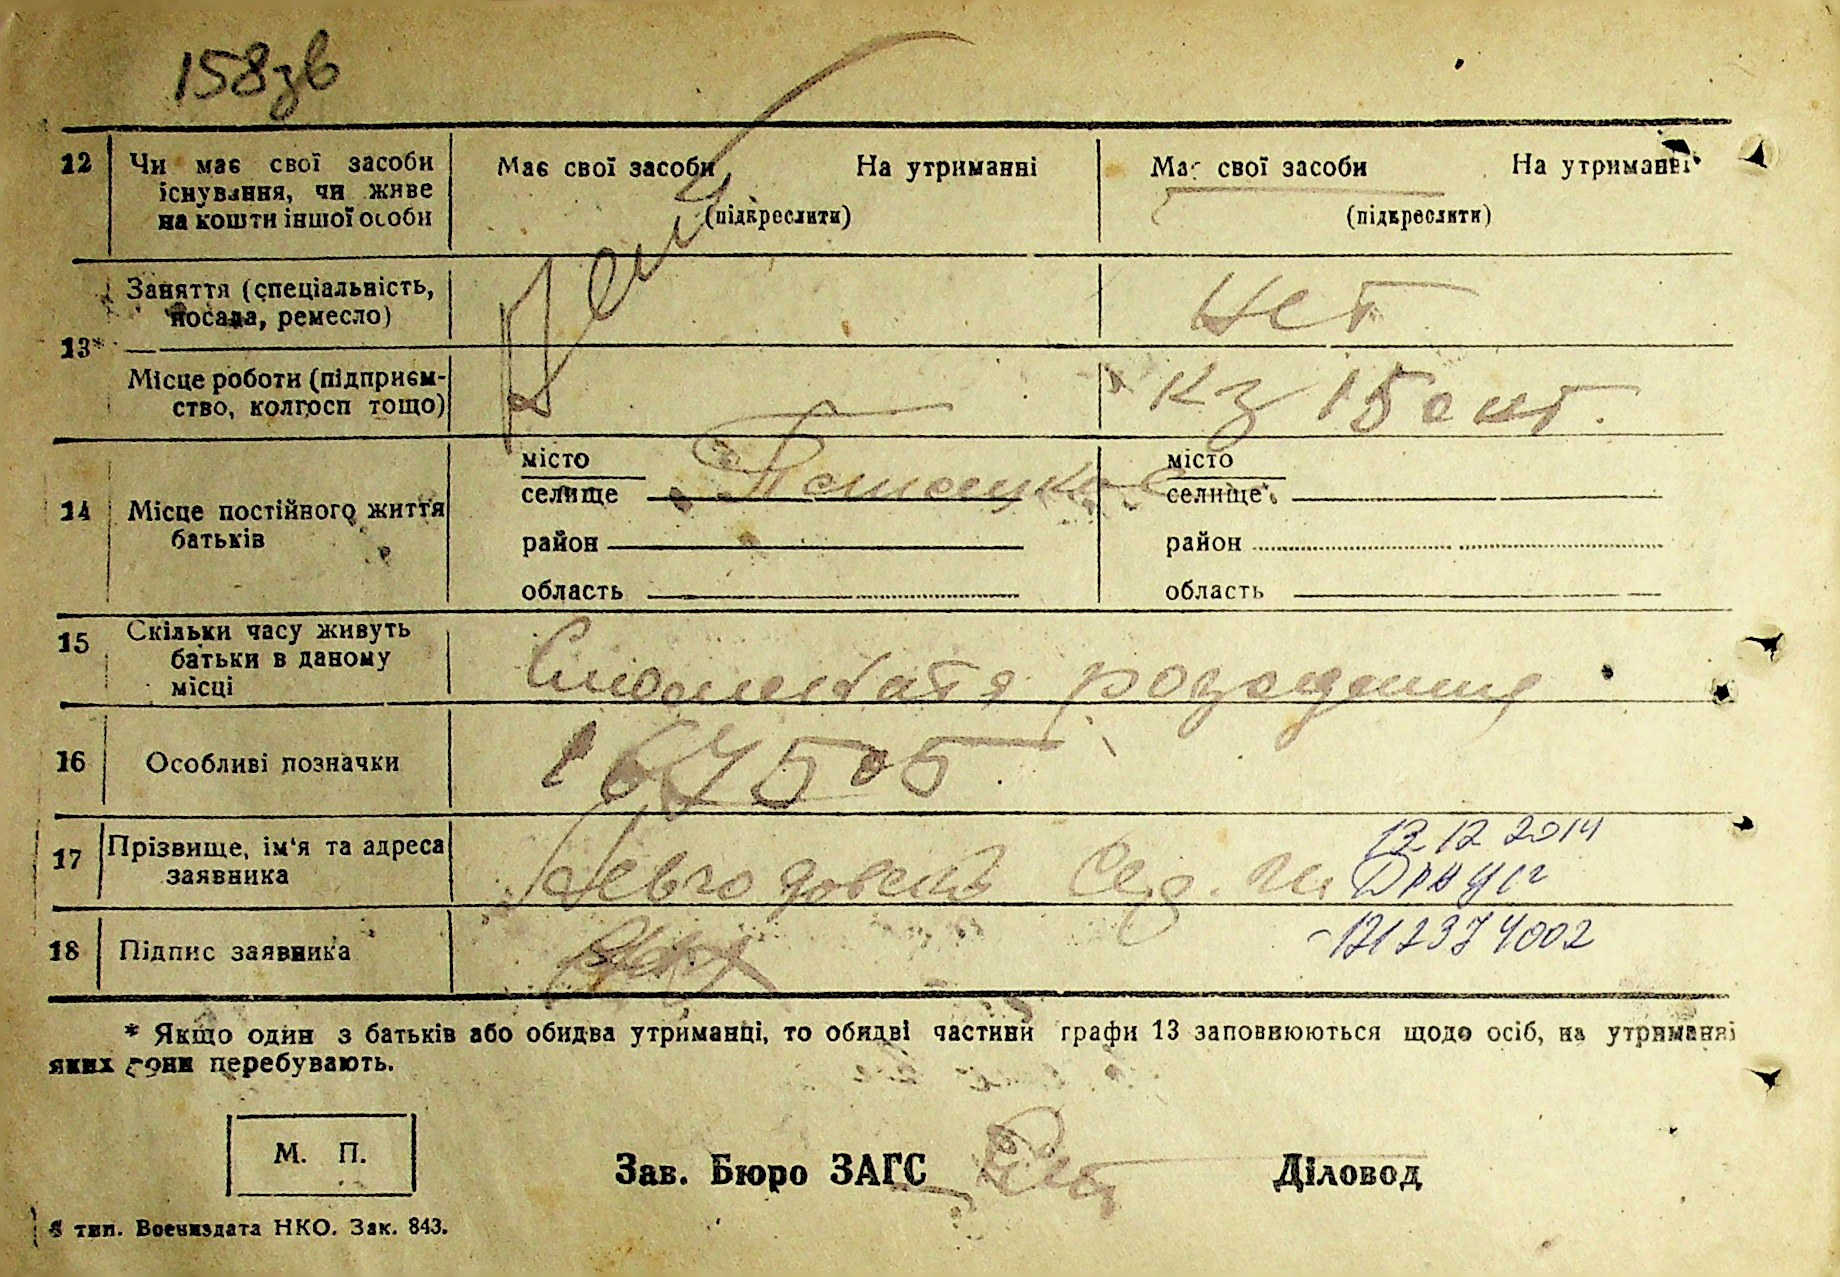 158зв
12 Чи має свої засоби існування, чи живе на кошти іншої особи
Має свої засоби На утриманні
(підкреслити)
Має свої засоби На утриманні
(підкреслити)
13* Заняття (спеціальність, посада, ремесло)
нет
Місце роботи (підприємство, колгосп тощо)
кз 15 лет.
14 Місце постійного життя батьків
місто
селище
район
область
місто
селище
район
область
15 Скільки часу живуть батьки в даному місці
рождения
16 Особливі позначки
167505
17 Прізвище, ім'я та адреса заявника
12 12 2014
18 Підпис заявника
1212374002
* Якщо один з батьків або обидва утриманці, то обидві частини графи 13 заповнюються щодо осіб, на утриманні
яких вони перебувають.
М. П.
Зав. Бюро ЗАГС
Діловод
тип. Воениздата НКО. Зак. 843.